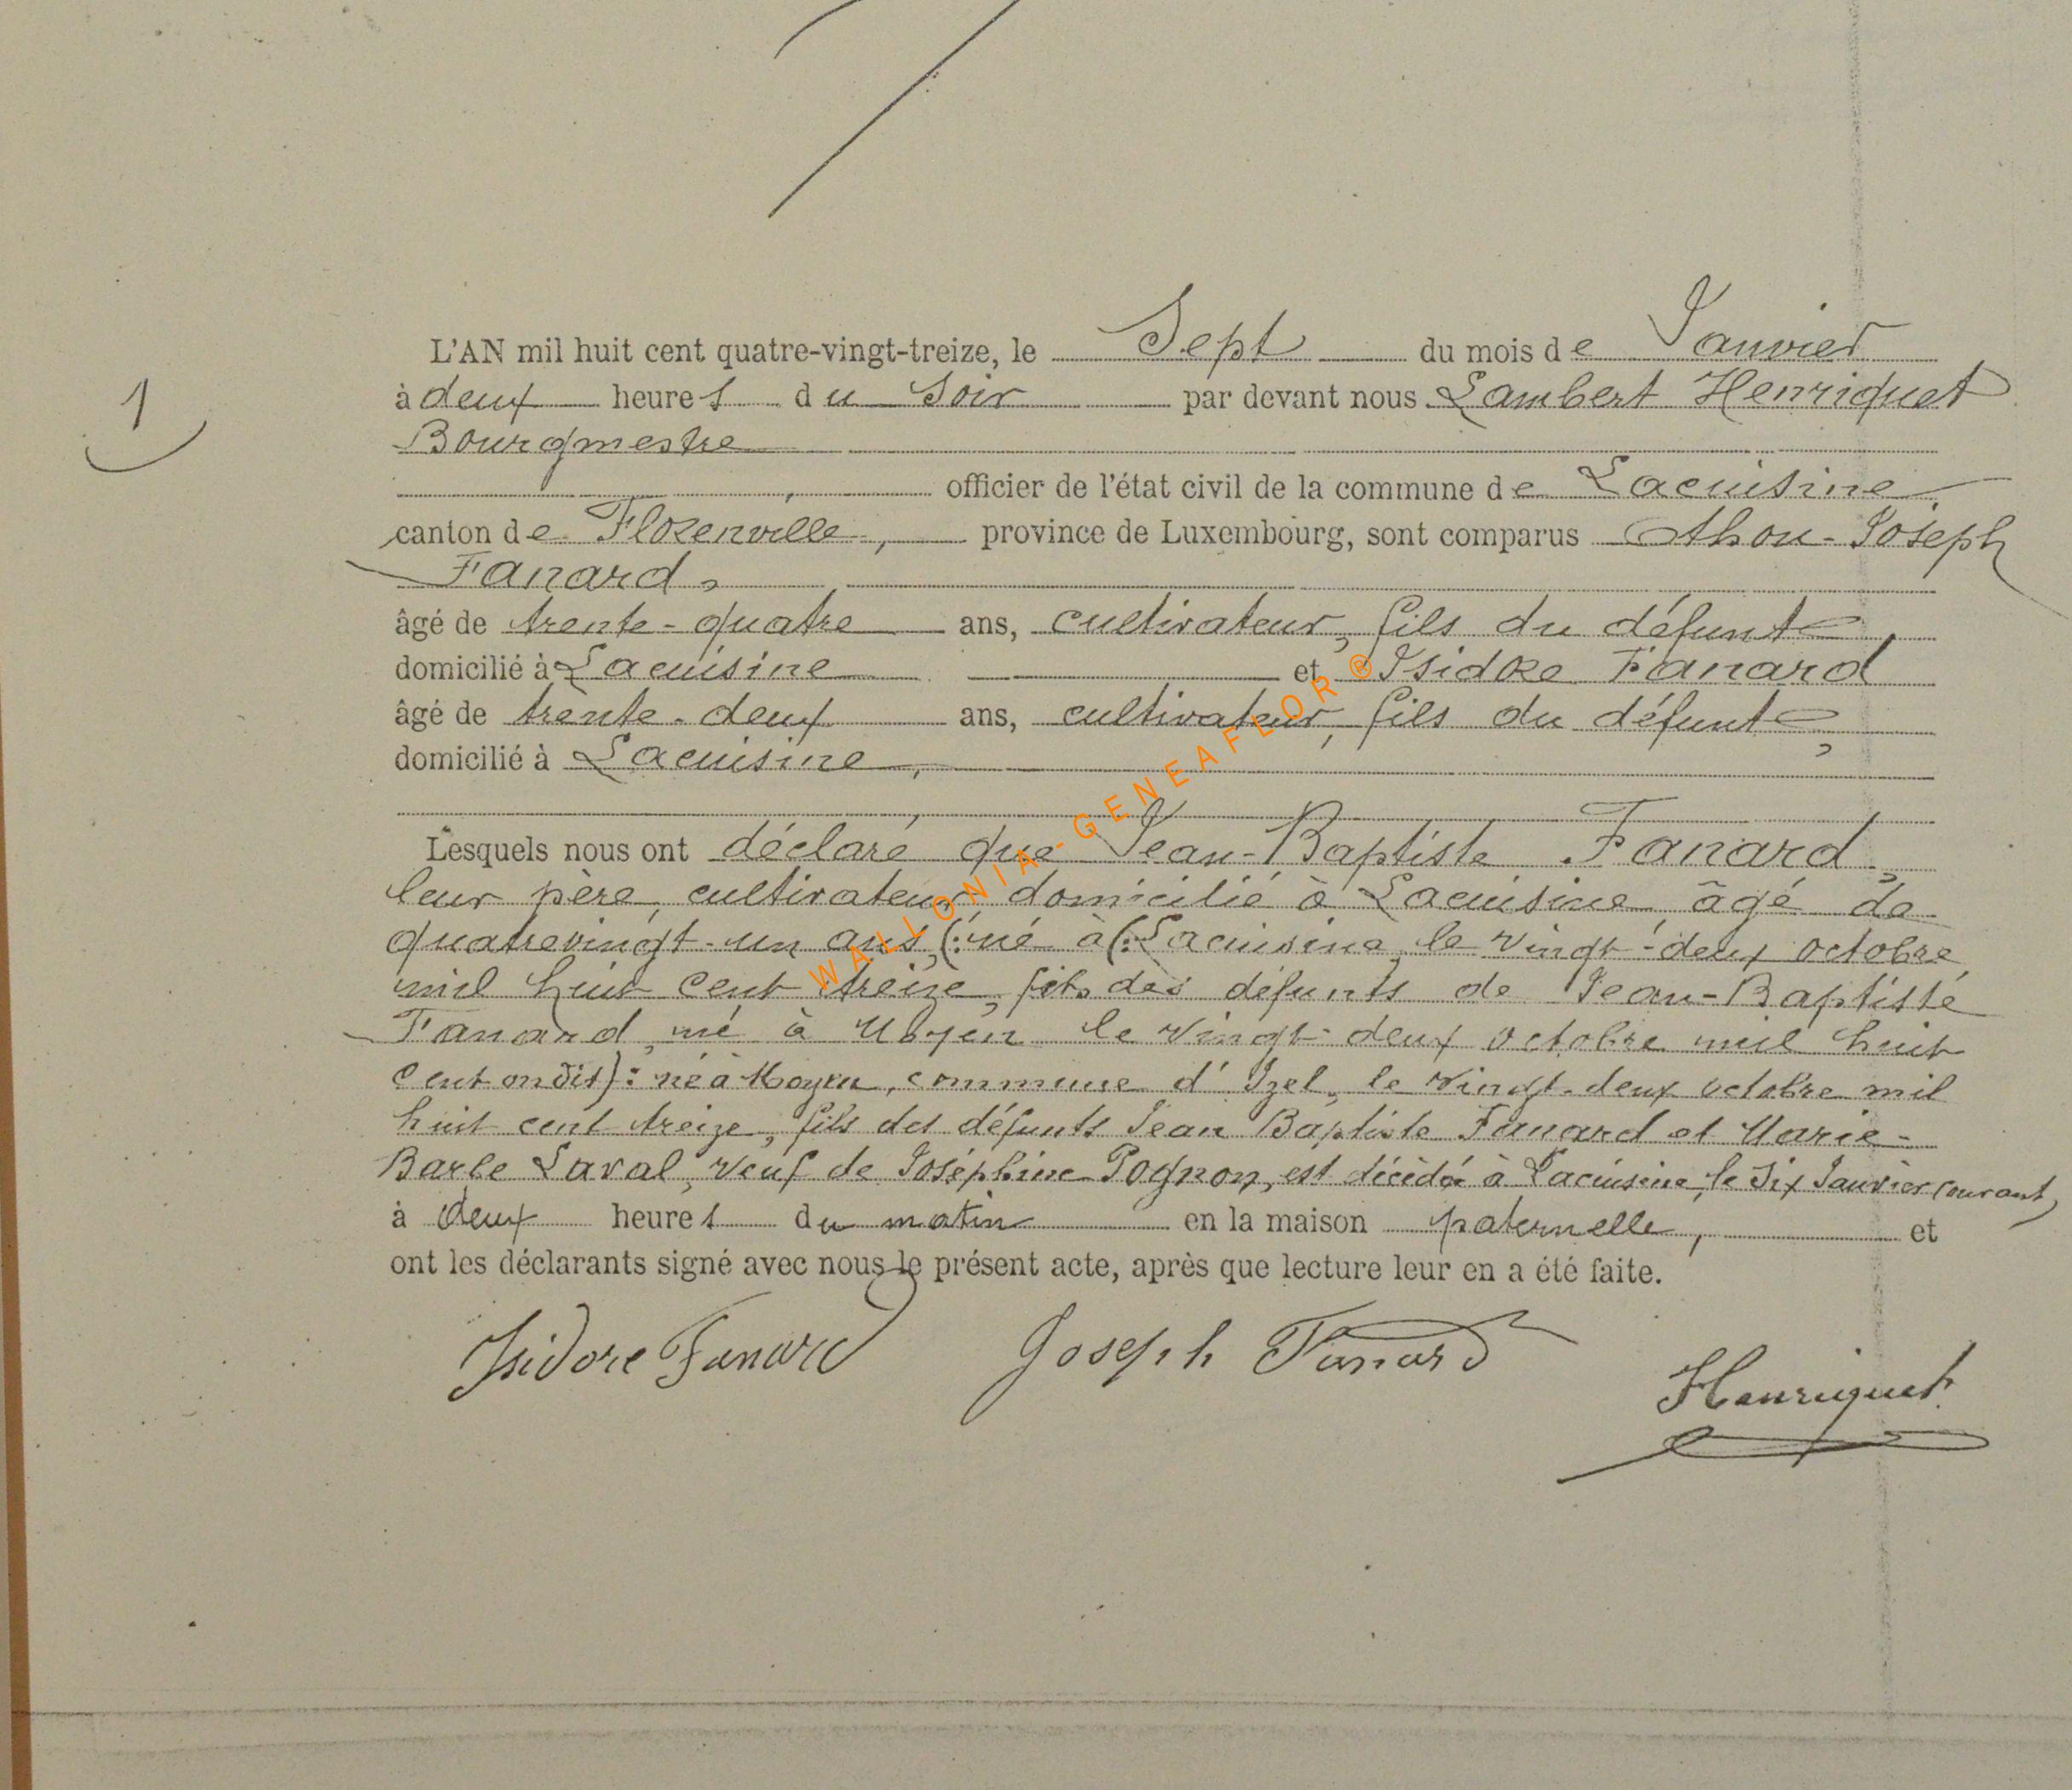 L'AN mil huit cent quatre-vingt-treize, le Sept du mois de Janvier
1
à deux heures du Soir par devant nous Lambert Henriquet
Bourgmestre
officier de l'état civil de la commune de Lacuisine
canton de Florenville, province de Luxembourg, sont comparus Athou-Joseph
Fanard,
âgé de trente-quatre ans, cultivateur, fils du défunt,
domicilié à Lacuisine et Isidore Fanard
âgé de trente-deux ans, cultivateur, fils du défunt,
domicilié à Lacuisine,
Lesquels nous ont déclaré que Jean-Baptiste Fanard,
leur père, cultivateur domicilié à Lacuisine âgé de
quatrevingt-un ans, (: né à (: Lacuisine, le vingt-deux octobre
mil huit cent treize, fils des défunts de Jean-Baptiste
Fanard, né à Moyen le vingt-deux octobre mil huit
cent on dit) : né à Moyen, commune d'Izel, le vingt-deux octobre mil
huit cent treize, fils des défunts Jean Baptiste Fanard et Marie-
Barbe Laval, veuf de Joséphine Pognon, est décédé à Lacuisine, le Six Janvier courant,
à deux heures du matin en la maison paternelle, et
ont les déclarants signé avec nous le présent acte, après que lecture leur en a été faite.
Isidore Fanard Joseph Fanard
Henriquet
WALLONIA-GENEAFLOR ®